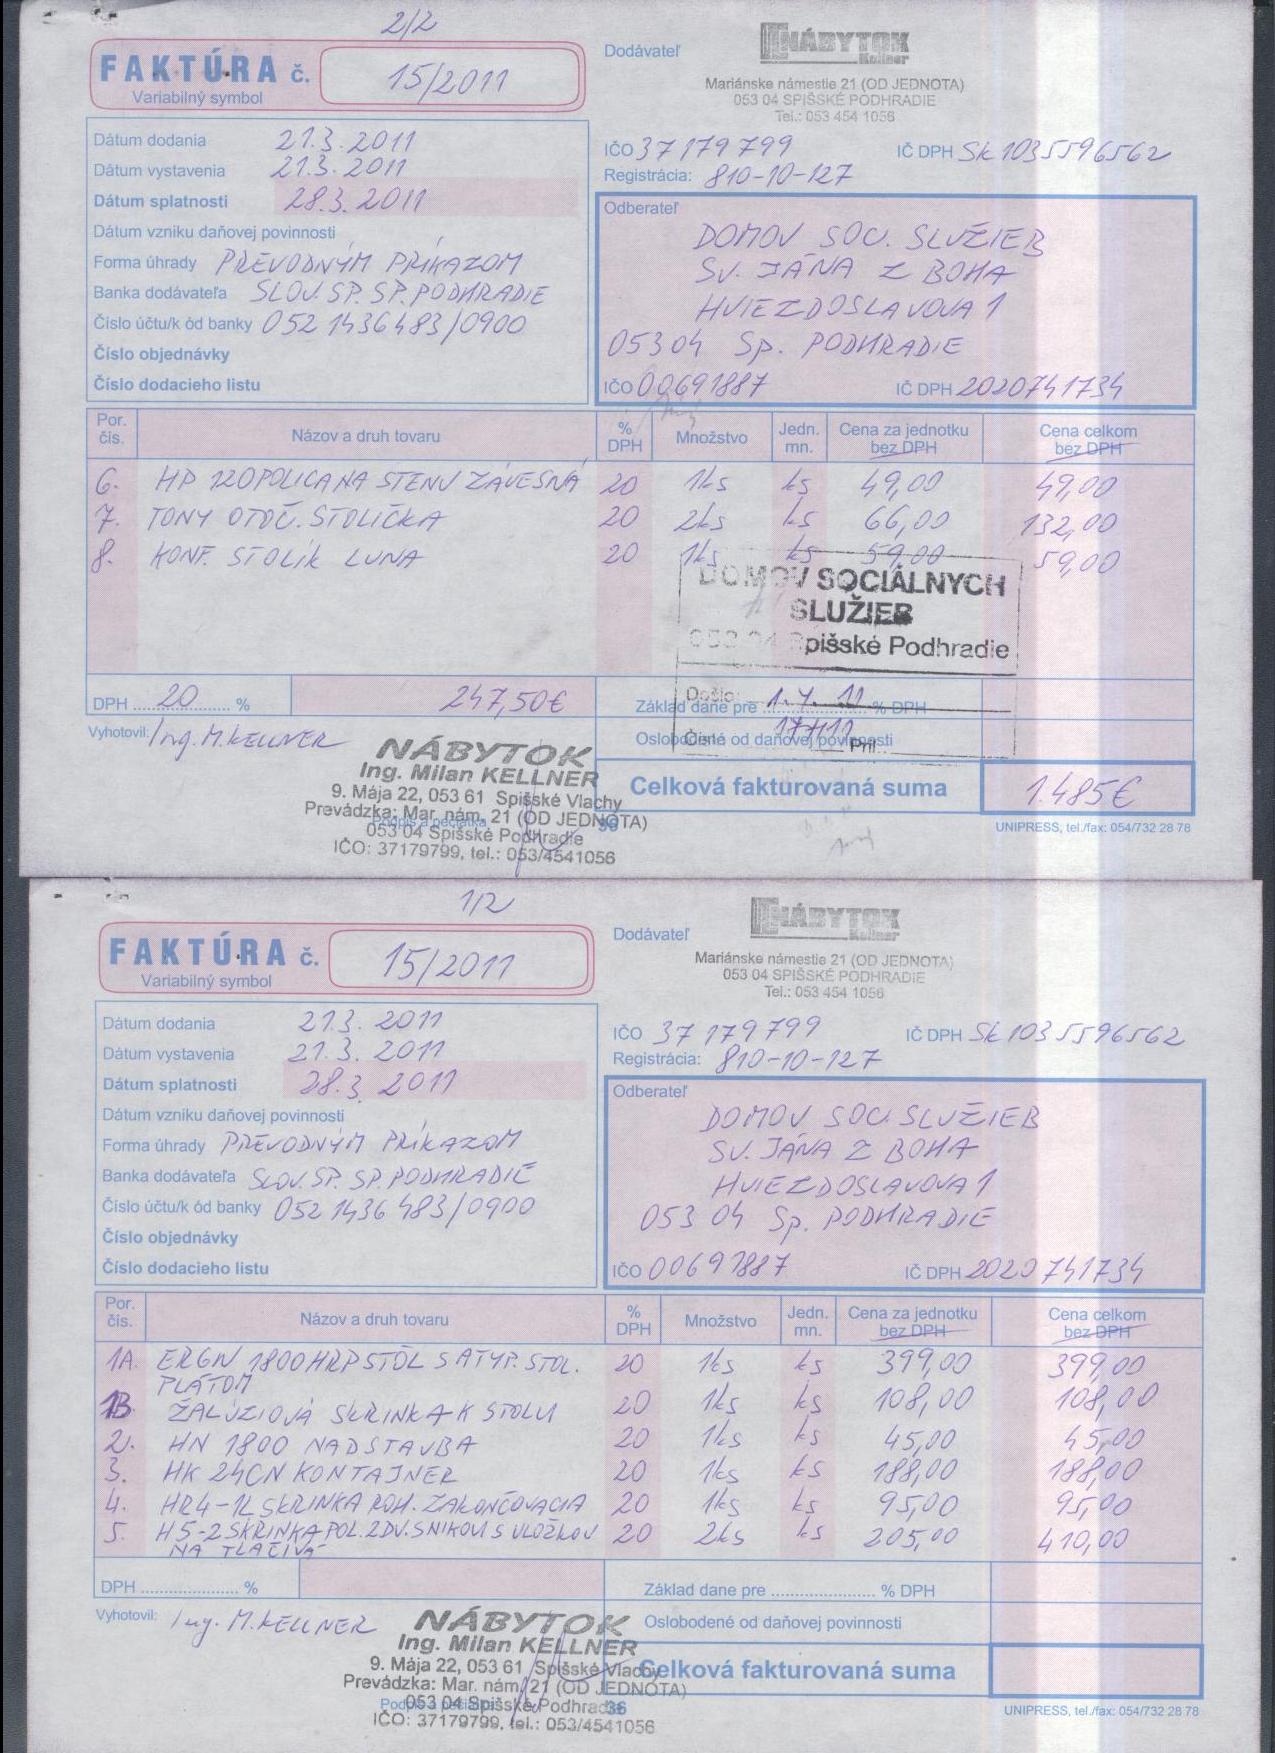 2/2
FAKTÚRA č. 15/2011
Variabilný symbol
Dodávateľ
NÁBYTOK
Kellner
Mariánske námestie 21 (OD JEDNOTA)
053 04 SPIŠSKÉ PODHRADIE
Tel.: 053 454 1056
Dátum dodania 21.3.2011
Dátum vystavenia 21.3.2011
Dátum splatnosti 28.3.2011
Dátum vzniku daňovej povinnosti
Forma úhrady PREVODNÝM PRÍKAZOM
Banka dodávateľa SLOV.SP. SP.PODHRADIE
Číslo účtu/k ód banky 052 1436 483/0900
Číslo objednávky
Číslo dodacieho listu
IČO 37 179 799 IČ DPH SK 1035596562
Registrácia: 810-10-127
Odberateľ
DOMOV SOC. SLUŽIEB
SV. JÁNA Z BOHA
HVIEZDOSLAVOVA 1
053 04 SP. PODHRADIE
IČO 00691887 IČ DPH 2020741734
Por. čís. Názov a druh tovaru % DPH Množstvo Jedn. mn. Cena za jednotku bez DPH Cena celkom bez DPH
6. HP 120 POLICA NA STENU ZÁVESNÁ 20 1ks ks 49,00 49,00
7. TONY OTOČ. STOLIČKA 20 2ks ks 66,00 132,00
8. KONF. STOLÍK LUNA 20 1ks ks 59,00 59,00
DOMOV SOCIÁLNYCH
SLUŽIEB
053 04 Spišské Podhradie
Došlo: 1.4.11
Číslo: 177/11 Príl.
DPH 20 % 247,50€ Základ dane pre % DPH
Oslobodené od daňovej povinnosti
Vyhotovil: Ing. M. KELLNER
Celková fakturovaná suma 1.485€
NÁBYTOK
Ing. Milan KELLNER
9. Mája 22, 053 61 Spišské Vlachy
Prevádzka: Mar. nám. 21 (OD JEDNOTA)
053 04 Spišské Podhradie
IČO: 37179799, tel.: 053/4541056
Podpis a pečiatka
36
UNIPRESS, tel./fax: 054/732 28 78
1/2
FAKTÚRA č. 15/2011
Variabilný symbol
Dodávateľ
NÁBYTOK
Kellner
Mariánske námestie 21 (OD JEDNOTA)
053 04 SPIŠSKÉ PODHRADIE
Tel.: 053 454 1056
Dátum dodania 21.3. 2011
Dátum vystavenia 21.3. 2011
Dátum splatnosti 28.3. 2011
Dátum vzniku daňovej povinnosti
Forma úhrady PREVODNÝM PRÍKAZOM
Banka dodávateľa SLOV.SP. SP.PODHRADIE
Číslo účtu/k ód banky 052 1436 483/0900
Číslo objednávky
Číslo dodacieho listu
IČO 37 179 799 IČ DPH SK 1035596562
Registrácia: 810-10-127
Odberateľ
DOMOV SOC. SLUŽIEB
SV. JÁNA Z BOHA
HVIEZDOSLAVOVA 1
053 04 SP. PODHRADIE
IČO 00691887 IČ DPH 2020741734
Por. čís. Názov a druh tovaru % DPH Množstvo Jedn. mn. Cena za jednotku bez DPH Cena celkom bez DPH
1A. ERGN 1800 HRP STÔL S ATYP. STOL. 20 1ks ks 399,00 399,00
PLÁTOM
1B ŽALÚZIOVÁ SKRINKA K STOLU 20 1ks ks 108,00 108,00
2. HN 1800 NADSTAVBA 20 1ks ks 45,00 45,00
3. HK 24CN KONTAJNER 20 1ks ks 188,00 188,00
4. HR4-1L SKRINKA ROH. ZAKONČOVACIA 20 1ks ks 95,00 95,00
5. H5-2 SKRINKA POL. 2DV. S NIKOU S VLOŽKOU 20 2ks ks 205,00 410,00
NA TLAČIVÁ
DPH % Základ dane pre % DPH
Oslobodené od daňovej povinnosti
Vyhotovil: Ing. M. KELLNER
Celková fakturovaná suma
NÁBYTOK
Ing. Milan KELLNER
9. Mája 22, 053 61 Spišské Vlachy
Prevádzka: Mar. nám. 21 (OD JEDNOTA)
053 04 Spišské Podhradie
IČO: 37179799, tel.: 053/4541056
Podpis a pečiatka
36
UNIPRESS, tel./fax: 054/732 28 78